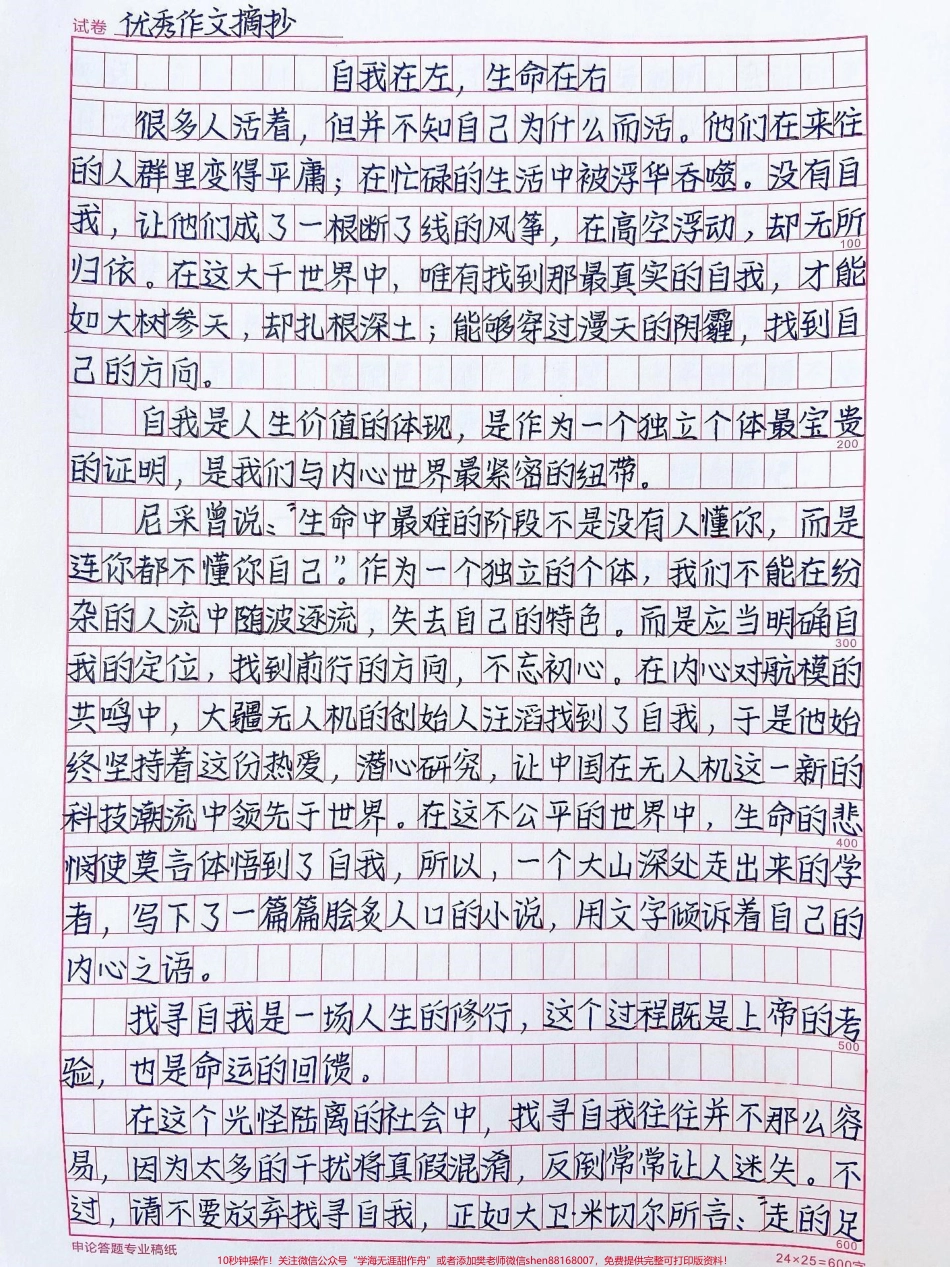 试卷 优秀作文摘抄
自我在左，生命在右
很多人活着，但并不知自己为什么而活。他们在来往
的人群里变得平庸；在忙碌的生活中被浮华吞噬。没有自
我，让他们成了一根断了线的风筝，在高空浮动，却无所
100
归依。在这大千世界中，唯有找到那最真实的自我，才能
如大树参天，却扎根深土；能够穿过漫天的阴霾，找到自
己的方向。
自我是人生价值的体现，是作为一个独立个体最宝贵
200
的证明，是我们与内心世界最紧密的纽带。
尼采曾说：“生命中最难的阶段不是没有人懂你，而是
连你都不懂你自己”。作为一个独立的个体，我们不能在纷
杂的人流中随波逐流，失去自己的特色。而是应当明确自
300
我的定位，找到前行的方向，不忘初心。在内心对航模的
共鸣中，大疆无人机的创始人汪滔找到了自我，于是他始
终坚持着这份热爱，潜心研究，让中国在无人机这一新的
科技潮流中领先于世界。在这不公平的世界中，生命的悲
400
悯使莫言体悟到了自我，所以，一个大山深处走出来的学
者，写下了一篇篇脍炙人口的小说，用文字倾诉着自己的
内心之语。
找寻自我是一场人生的修行，这个过程既是上帝的考
500
验，也是命运的回馈。
在这个光怪陆离的社会中，找寻自我往往并不那么容
易，因为太多的干扰将真假混淆，反倒常常让人迷失。不
过，请不要放弃找寻自我，正如大卫·米切尔所言：“走的足
600
申论答题专业稿纸
24×25=600字
10秒钟操作！关注微信公众号“学海无涯甜作舟”或者添加樊老师微信shen88168007，免费提供完整可打印版资料！